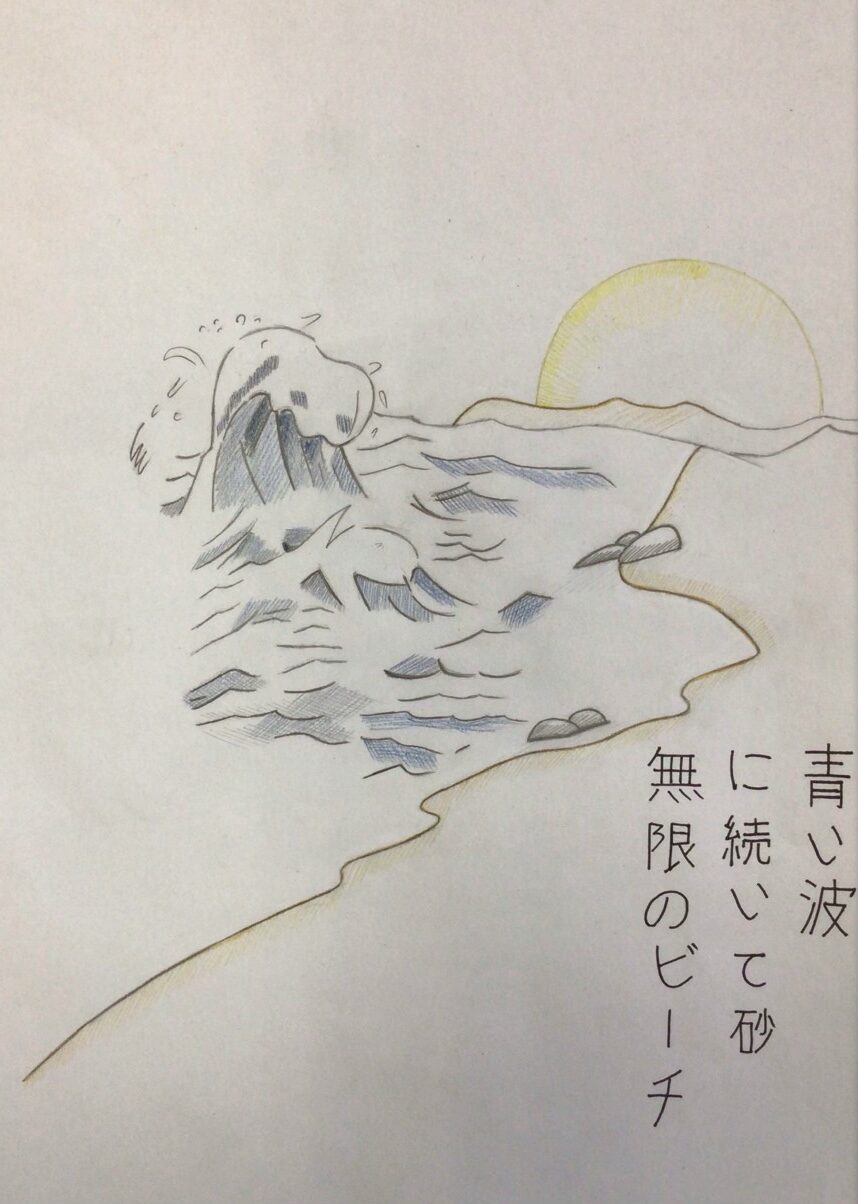 青い波
に続いて砂
無限のビーチ